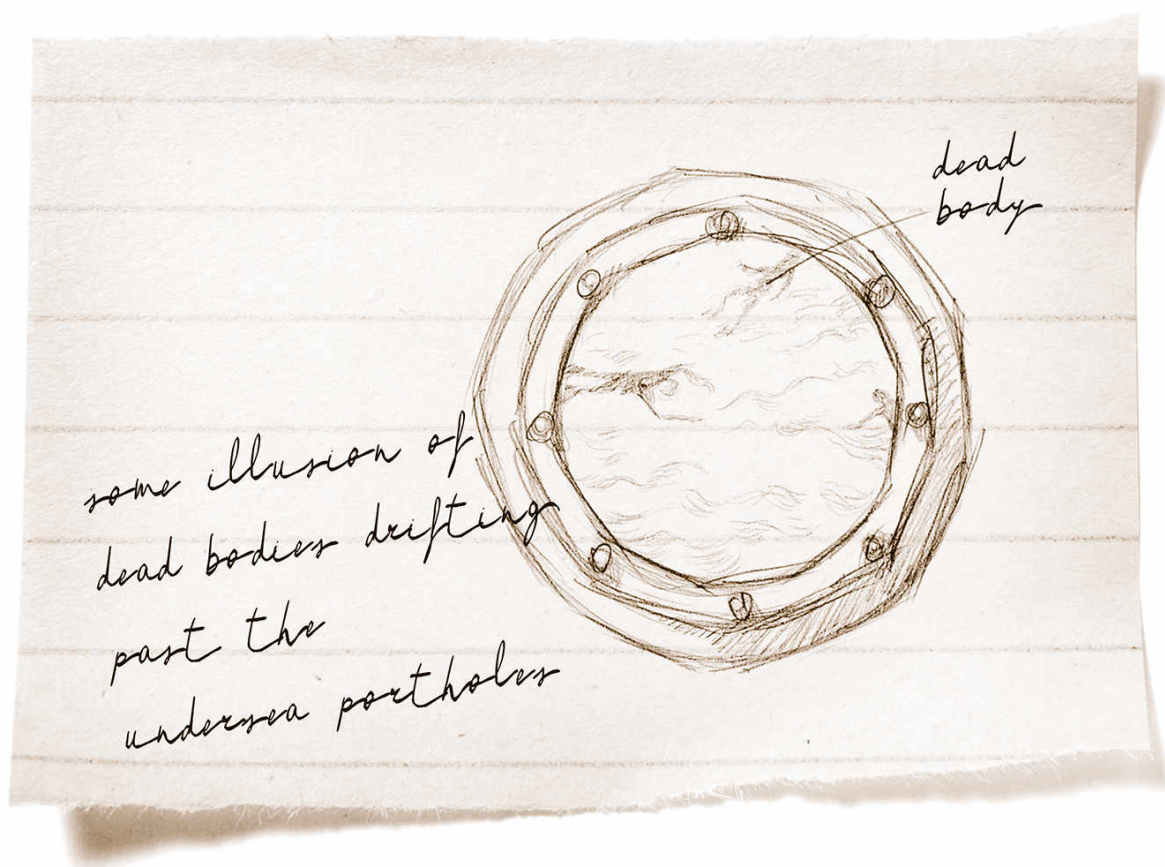 dead
body
some illusion of
dead bodies drifting
past the
undersea portholes